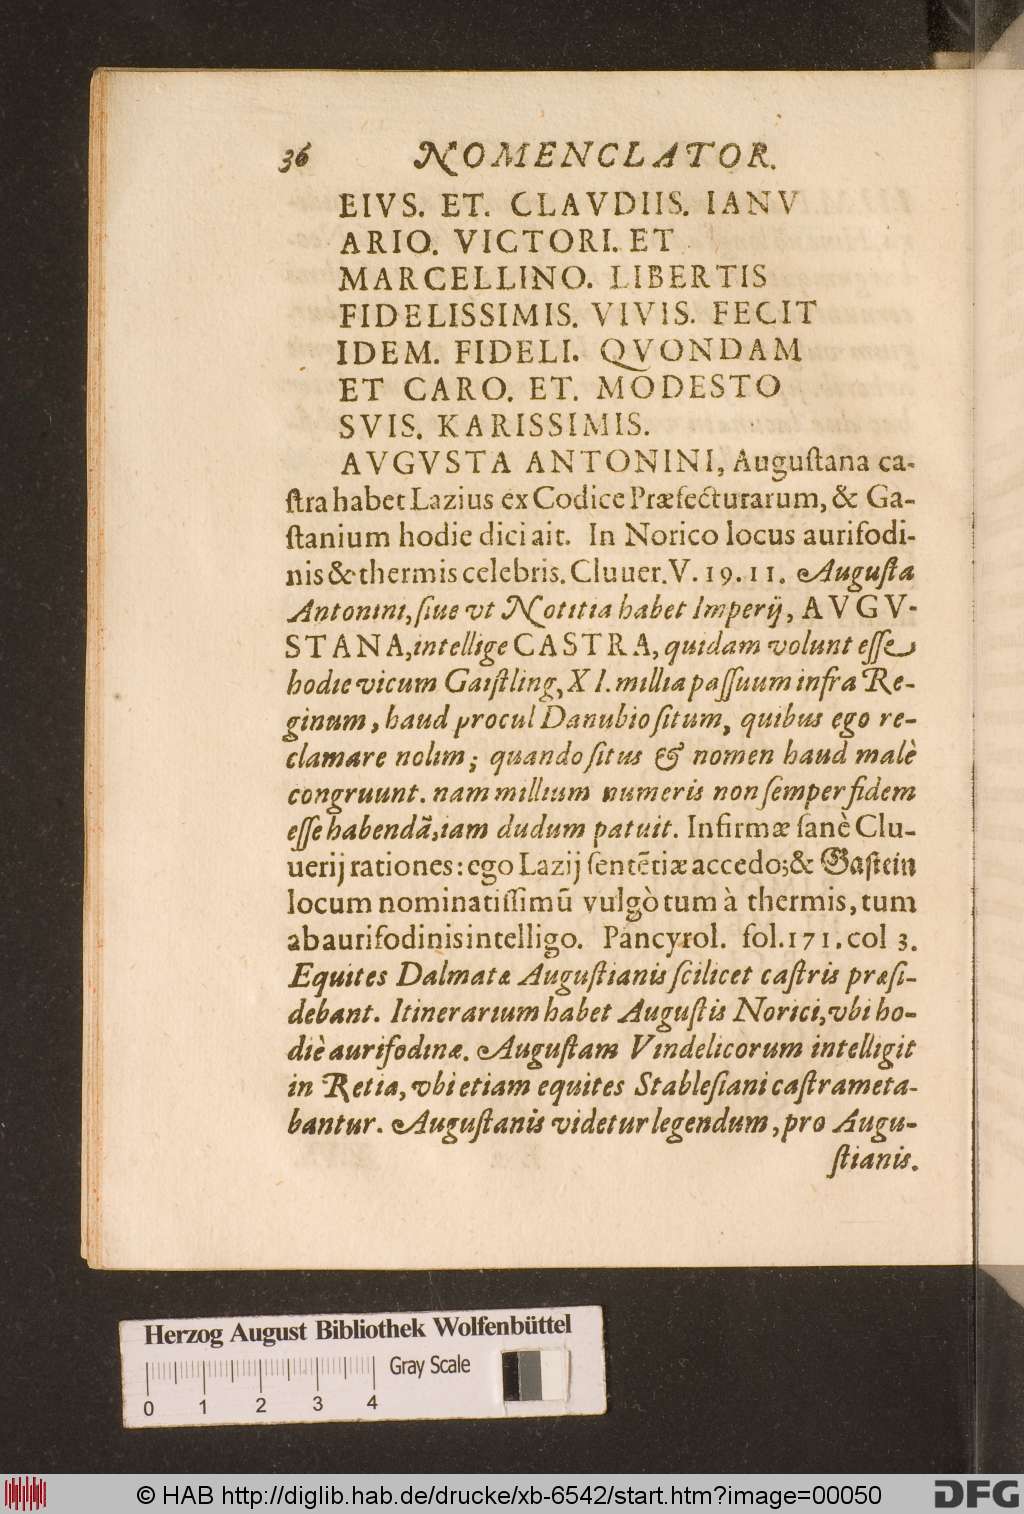 36 NOMENCLATOR.
EIVS. ET. CLAVDIIS. IANV
ARIO. VICTORI. ET
MARCELLINO. LIBERTIS
FIDELISSIMIS. VIVIS. FECIT
IDEM. FIDELI. QVONDAM
ET CARO. ET. MODESTO
SVIS. KARISSIMIS.
AVGVSTA ANTONINI, Auguſtana ca-
ſtra habet Lazius ex Codice Præfecturarum, & Ga-
ſtanium hodie dici ait. In Norico locus aurifodi-
nis & thermis celebris. Cluuer. V. 19. 11. Auguſta
Antonini, ſiue vt Notitia habet Imperij, AVGV-
STANA, intellige CASTRA, quidam volunt eſſe
hodie vicum Gaiſtling, XI. millia paſſuum infra Re-
ginum, haud procul Danubio ſitum, quibus ego re-
clamare nolim; quando ſitus & nomen haud malè
congruunt. nam millium numeris non ſemper fidem
eſſe habendã, iam dudum patuit. Infirmæ ſanè Clu-
uerij rationes: ego Lazij ſentẽtiæ accedo; & Gaſtein
locum nominatiſſimũ vulgò tum à thermis, tum
ab aurifodinis intelligo. Pancyrol. fol. 171. col 3.
Equites Dalmatæ Auguſtianis ſcilicet caſtris præſi-
debant. Itinerarium habet Auguſtis Norici, vbi ho-
diè aurifodinæ. Auguſtam Vindelicorum intelligit
in Retia, vbi etiam equites Stableſiani caſtrameta-
bantur. Auguſtanis videtur legendum, pro Augu-
ſtianis.
Herzog August Bibliothek Wolfenbüttel
Gray Scale
0 1 2 3 4
© HAB http://diglib.hab.de/drucke/xb-6542/start.htm?image=00050
DFG